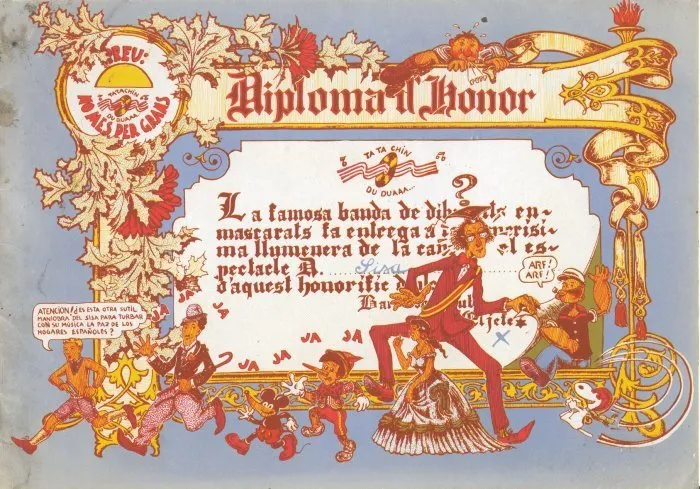 NOMÉS PER GRANS
TATACHIN
DU DUAAA
Diploma d'Honor
TA TA CHIN
DU DUAAA...
?
La famosa banda de en-
mascarats fa entrega a
ma llumenera de la el es-
pectacle D. Sisa
d'aquest honorific
ARF!
ARF!
ATENCION! ¿ES ESTA OTRA SUTIL
MANIOBRA DEL SISA PARA TURBAR
CON SU MUSICA LA PAZ DE LOS
HOGARES ESPAÑOLES?
JA JA JA JA JA JA JA JA